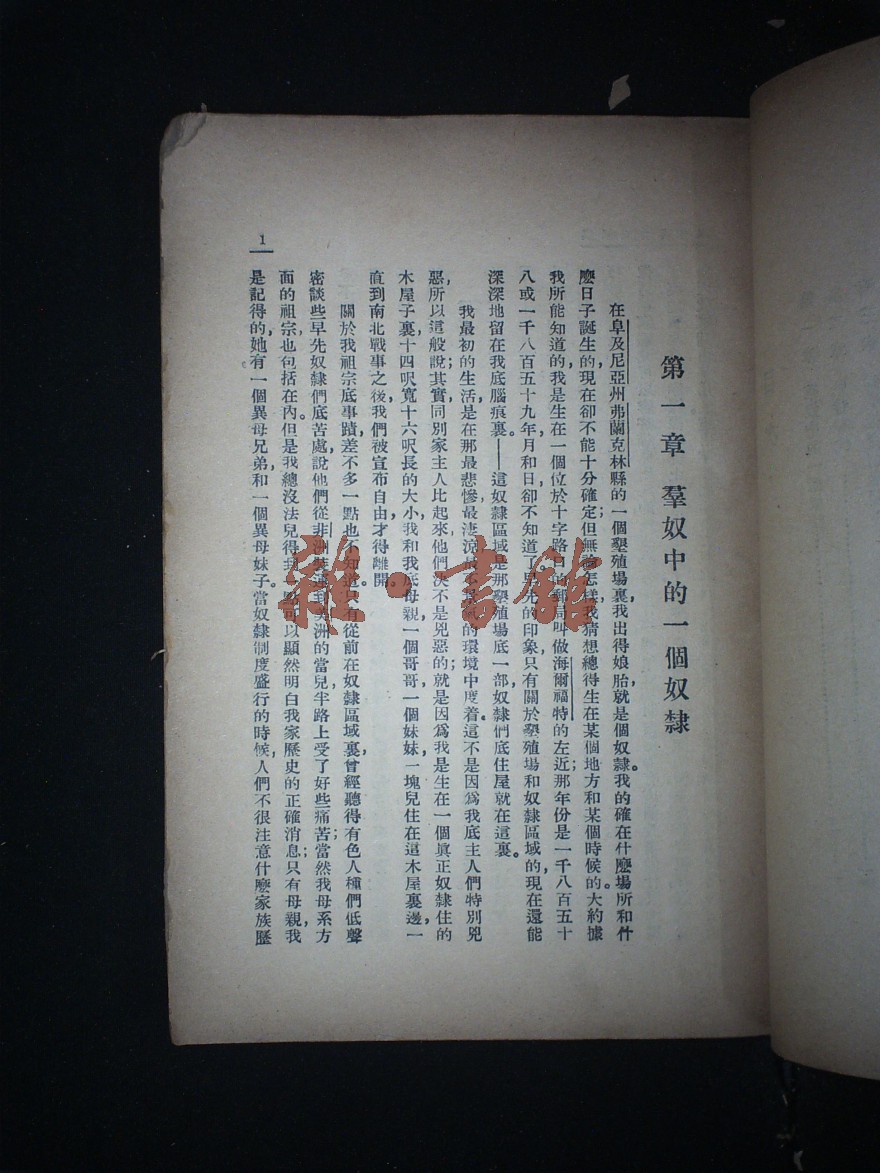 第一章 羣奴中的一個奴隸
在阜及尼亞州弗蘭克林縣的一個墾殖場裏，我出得娘胎，就是個奴隸。我的確在什麼場所和什
麼日子誕生的，現在卻不能十分確定；但無論怎樣，我猜想總得生在某個地方和某個時候的。大約據
我所能知道的，我是生在一個位於十字路口的郵局叫做海爾福特的左近；那年份是一千八百五十
八或一千八百五十九年，月和日卻不知道了。早先的印象，只有關於墾殖場和奴隸區域的，現在還能
深深地留在我底腦痕裏。——這奴隸區域是那墾殖場底一部，奴隸們底住屋就在這裏。
我最初的生活，是在那最悲慘，最淒涼，最不景氣的環境中度着。這不是因為我底主人們特別兇
惡，所以這般說；其實，同別家主人比起來，他們決不是兇惡的；就是因爲我是生在一個眞正奴隸住的
木屋子裏，十四呎寬十六呎長的大小，我和我底母親，一個哥哥，一個妹妹，一塊兒住在這木屋裏邊，一
直到南北戰事之後，我們被宣布自由，才得離開。
關於我祖宗底事蹟，差不多一點也不知道。只有從前在奴隸區域裏，曾經聽得有色人種們低聲
密談些早先奴隸們底苦處，說他們從非洲裝運到美洲的當兒，半路上受了好些痛苦；當然我母系方
面的祖宗，也包括在內。但是我總沒法兒得到一點可以顯然明白我家歷史的正確消息；只有母親，我
是記得的，她有一個異母兄弟，和一個異母妹子。當奴隸制度盛行的時候，人們不很注意什麼家族歷
1
雜·書館